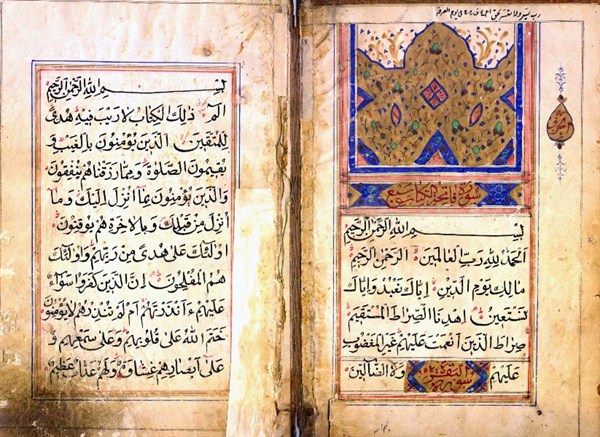 رب يسر ولا تعسر
سورة فاتحة الكتاب سبع
بسم الله الرحمن الرحيم
الحمد لله رب العالمين الرحمن الرحيم
مالك يوم الدين اياك نعبد واياك
نستعين اهدنا الصراط المستقيم
صراط الذين انعمت عليهم غير المغضوب
عليهم سورة البقرة ولا الضالين
بسم الله الرحمن الرحيم
الم ذلك الكتاب لا ريب فيه هدى
للمتقين الذين يؤمنون بالغيب و
يقيمون الصلوة ومما رزقناهم ينفقون
والذين يؤمنون بما انزل اليك وما
انزل من قبلك وبالاخرة هم يوقنون
اولئك على هدى من ربهم واولئك
هم المفلحون ان الذين كفروا سواء
عليهم ءانذرتهم ام لم تنذرهم لا يؤمنون
ختم الله على قلوبهم وعلى سمعهم و
على ابصارهم غشاوة ولهم عذاب عظيم